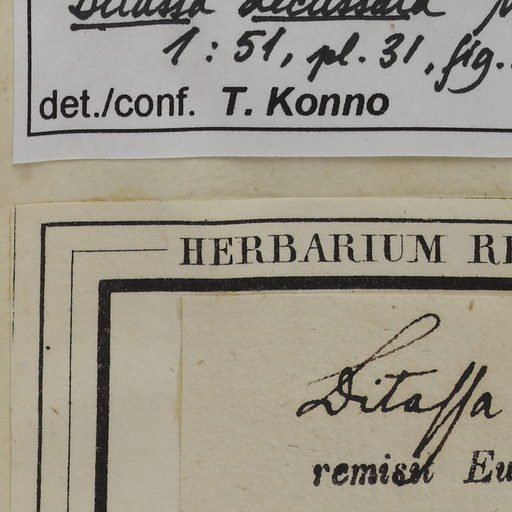 Ditassa decussata
1 : 51, pl. 31, fig.
det./conf. T. Konno
HERBARIUM
Ditassa
remisit